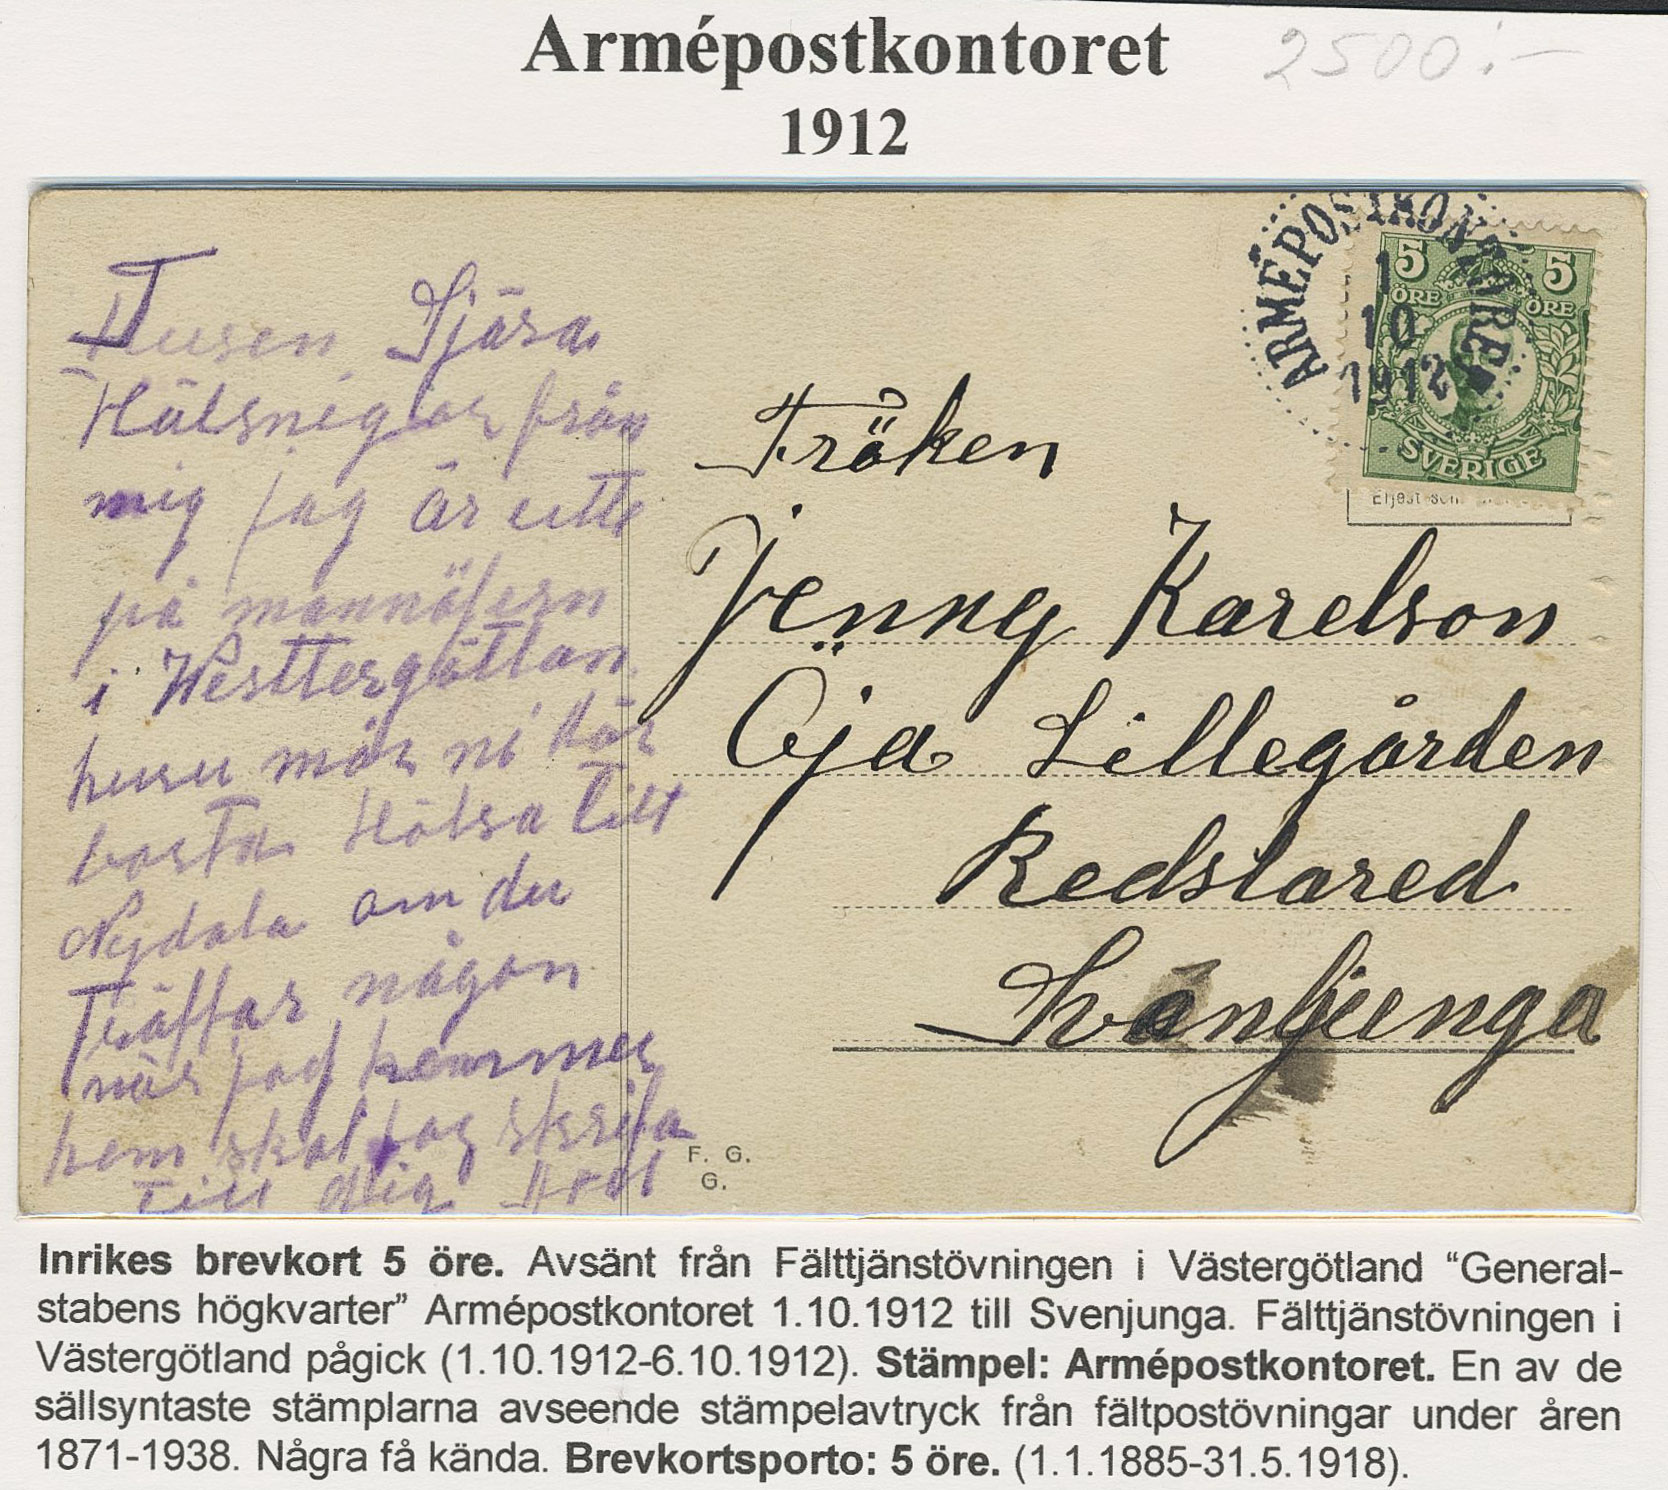 Armépostkontoret
1912
2500:-
Tusen Sjära
Hälsnigar från
mig jag är utte
på mannöfern
i Westtergöttlan
huru mår ni där
borta Hälsa till
Nydala om du
Träffar någon
när jag kommer
hem skal jag skrifa
Till dig
ARMÉPOSTKONTORET
1
10
1912
5 5
ÖRE ÖRE
SVERIGE
Fröken
Jenny Karelson
Öja Lillegården
Redslared
Svänjunga
F. G.
G.
Inrikes brevkort 5 öre. Avsänt från Fälttjänstövningen i Västergötland “General-
stabens högkvarter” Armépostkontoret 1.10.1912 till Svenjunga. Fälttjänstövningen i
Västergötland pågick (1.10.1912-6.10.1912). Stämpel: Armépostkontoret. En av de
sällsyntaste stämplarna avseende stämpelavtryck från fältpostövningar under åren
1871-1938. Några få kända. Brevkortsporto: 5 öre. (1.1.1885-31.5.1918).